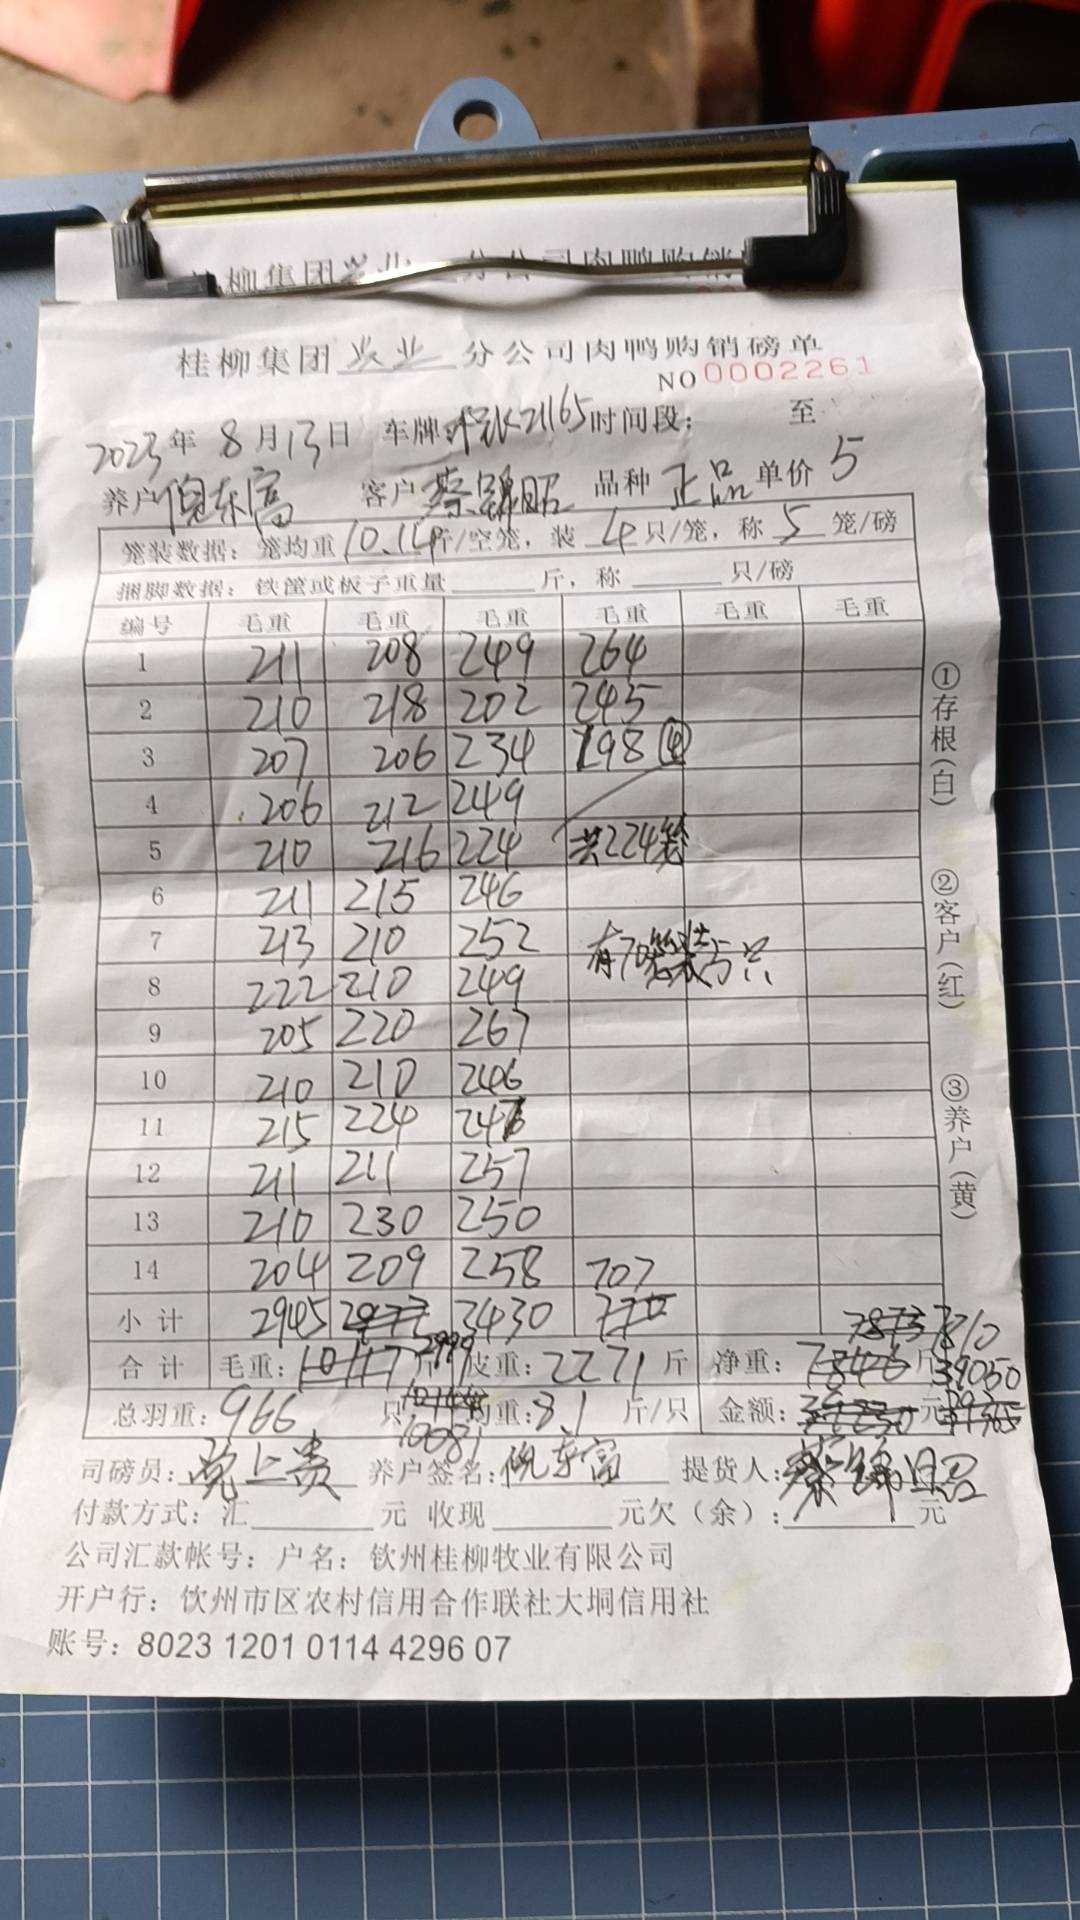 柳集团兴业 分公司肉鸭购销
桂柳集团 兴业 分公司肉鸭购销磅单
NO 0002261
2023年 8月13日 车牌: 21165 时间段: 至
养户 倪东富 客户 蔡锦昭 品种 正品 单价 5
笼装数据: 笼均重 10.14 斤/空笼, 装 4 只/笼, 称 5 笼/磅
捆脚数据: 铁筐或板子重量 斤, 称 只/磅
编号 毛重 毛重 毛重 毛重 毛重 毛重
1 211 208 249 264
2 210 218 202 245
3 207 206 234 198 ④
4 206 212 249
5 210 216 224 共224笼
6 211 215 246
7 213 210 252 有70笼装5只
8 222 210 249
9 205 220 267
10 210 210 246
11 215 224 247
12 211 211 257
13 210 230 250
14 204 209 258 707
小计 2945 2999 3430 7873 7810
合计 毛重: 10117 斤 皮重: 2271 斤 净重: 7846 斤 39050
总羽重: 966 只 10081 均重: 8.1 斤/只 金额: 元
司磅员: 养户签名: 倪东富 提货人: 蔡锦昭
付款方式: 汇 元 收现 元欠(余): 元
公司汇款帐号: 户名: 钦州桂柳牧业有限公司
开户行: 钦州市区农村信用合作联社大垌信用社
账号: 8023 1201 0114 4296 07
①存根(白)
②客户(红)
③养户(黄)